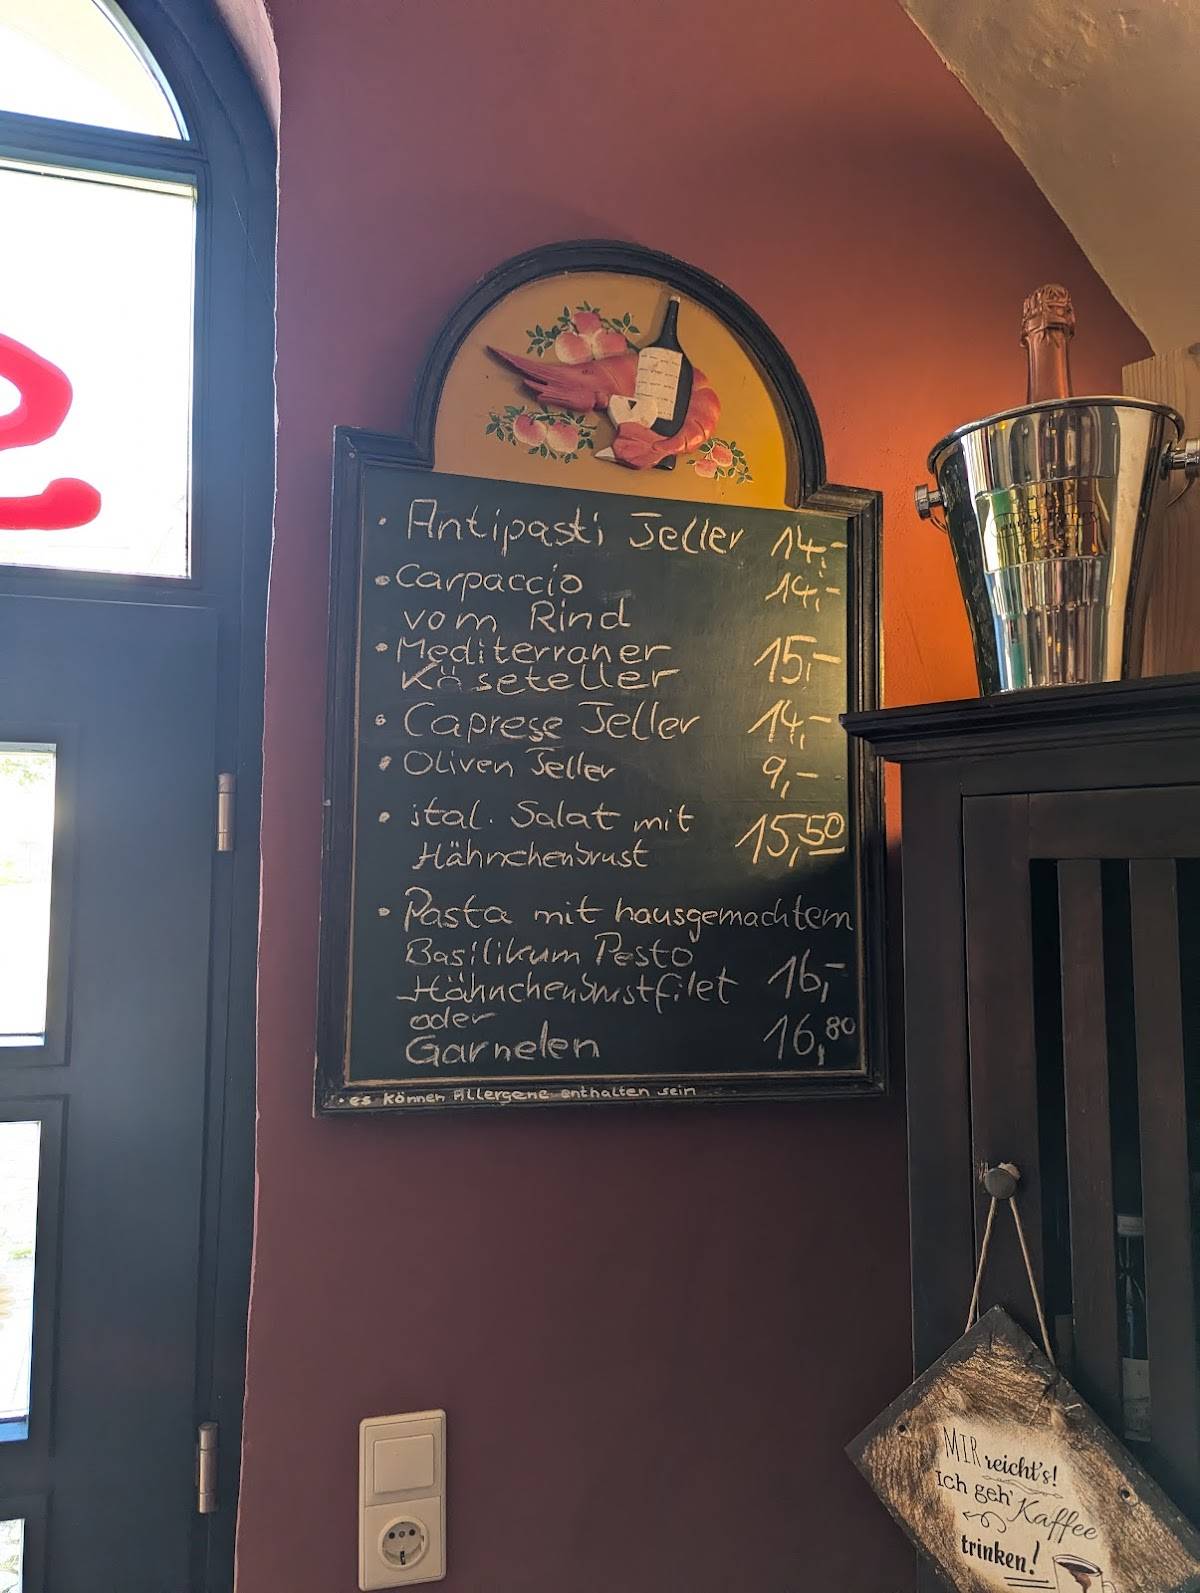 · Antipasti Teller 14,-
• Carpaccio 14,-
vom Rind
• Mediterraner 15,-
Käseteller
• Caprese Teller 14,-
• Oliven Teller 9,-
• ital. Salat mit 15,50
Hähnchenbrust
• Pasta mit hausgemachtem
Basilikum Pesto
Hähnchenbrustfilet 16,-
oder
Garnelen 16,80
• es können Allergene enthalten sein
MIR reicht's!
Ich geh'
Kaffee
trinken!